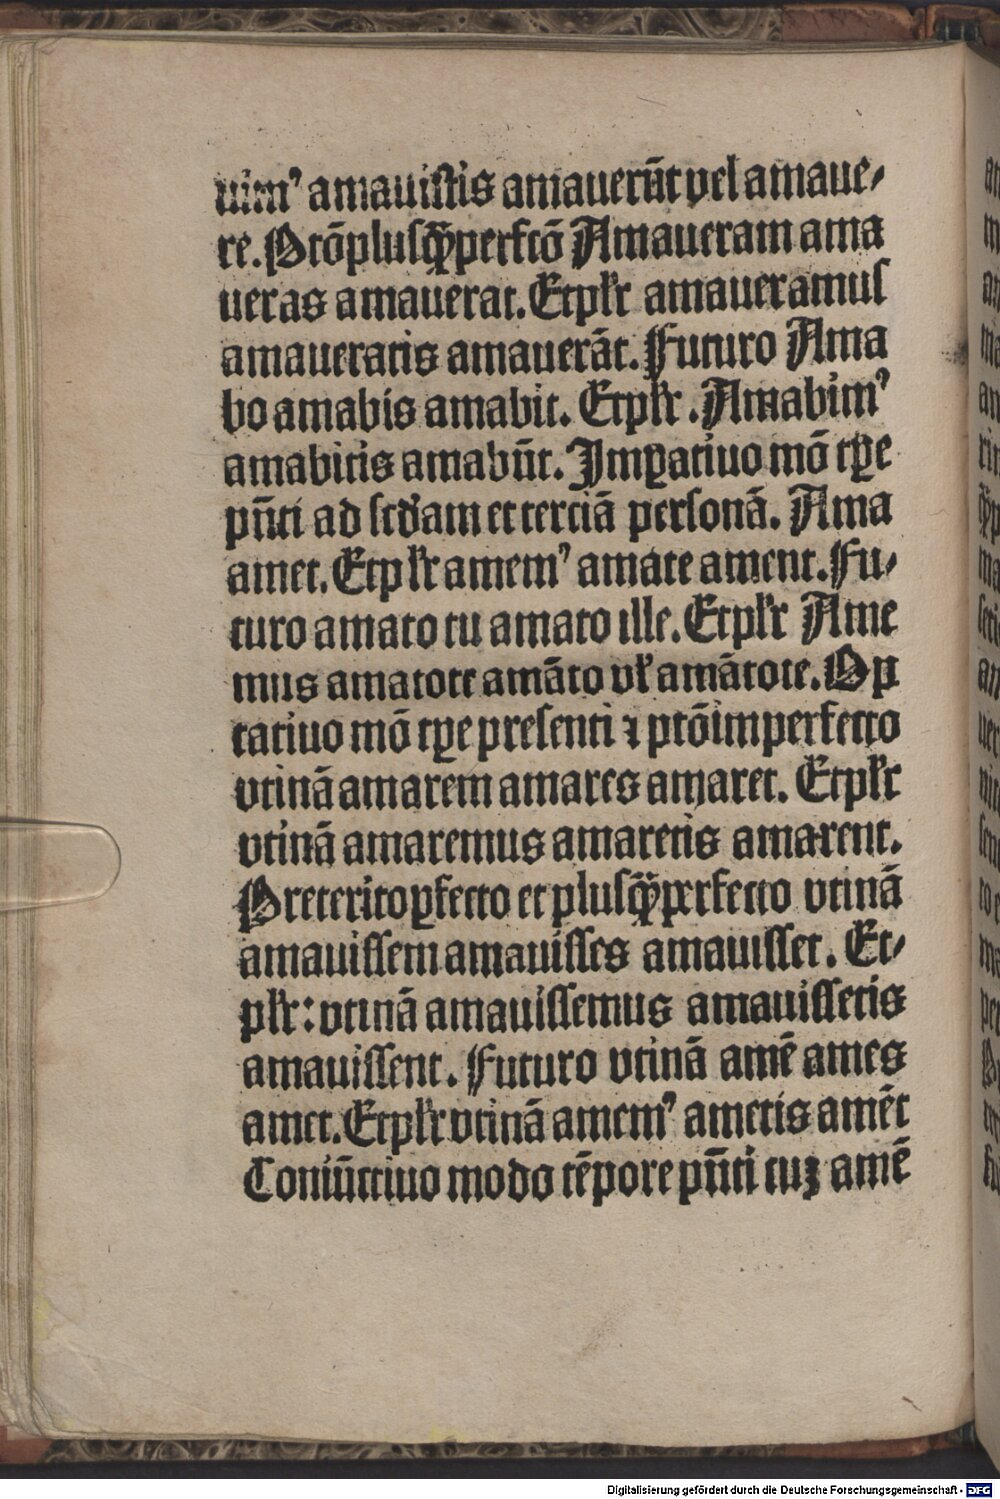 uimꝰ amauistis amauerūt vel amaue⸗
re. Ptōplusꝙ̄perfcō Amaueram ama
ueras amauerat. Etplʳr amaueramus
amaueratis amauerāt. Futuro Ama
bo amabis amabit. Etplʳr. Amabimꝰ
amabitis amabūt. Imꝑatiuo mō tꝑe
pn̄ti ad scd̄am et terciā personā. Ama
amet. Etplʳr amemꝰ amate ament. Fu⸗
turo amato tu amato ille. Etplʳr Ame
mus amatote amāto vl̓ amātote. Op
tatiuo mō tꝑe presenti ⁊ ptōimperfecto
vtinā amarem amares amaret. Etplʳr
vtinā amaremus amaretis amarent.
Preteritoꝑfecto et plusꝙ̄perfecto vtinā
amauissem amauisses amauisset. Et⸗
plʳr: vtinā amauissemus amauissetis
amauissent. Futuro vtinā amē ames
amet. Etplʳr vtinā amemꝰ ametis amēt
Coniūctiuo modo tēpore pn̄ti cuꝫ amē
Digitalisierung gefördert durch die Deutsche Forschungsgemeinschaft - DFG